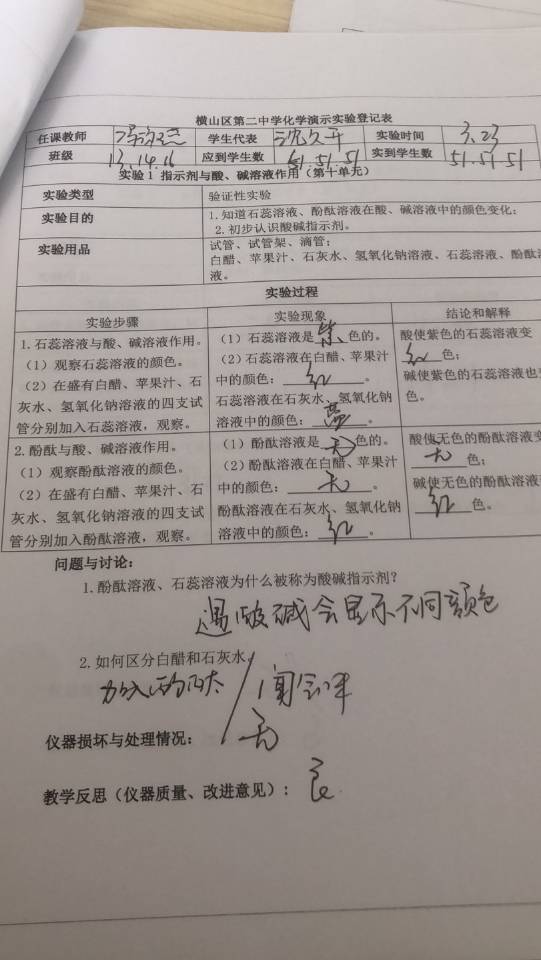 横山区第二中学化学演示实验登记表
任课教师 学生代表 实验时间 3.23
班级 13.14.16 应到学生数 51.51.51 实到学生数 51.51.51
实验1 指示剂与酸、碱溶液作用（第十单元）
实验类型 验证性实验
实验目的 1.知道石蕊溶液、酚酞溶液在酸、碱溶液中的颜色变化；
2.初步认识酸碱指示剂。
实验用品 试管、试管架、滴管；
白醋、苹果汁、石灰水、氢氧化钠溶液、石蕊溶液、酚酞溶
液。
实验过程
实验步骤 实验现象 结论和解释
1.石蕊溶液与酸、碱溶液作用。 （1）石蕊溶液是紫色的。 酸使紫色的石蕊溶液变
（1）观察石蕊溶液的颜色。 （2）石蕊溶液在白醋、苹果汁 红色；
（2）在盛有白醋、苹果汁、石 中的颜色：红。 碱使紫色的石蕊溶液也
灰水、氢氧化钠溶液的四支试 石蕊溶液在石灰水、氢氧化钠 色。
管分别加入石蕊溶液，观察。 溶液中的颜色：蓝。
2.酚酞与酸、碱溶液作用。 （1）酚酞溶液是无色的。 酸使无色的酚酞溶液变
（1）观察酚酞溶液的颜色。 （2）酚酞溶液在白醋、苹果汁 无色；
（2）在盛有白醋、苹果汁、石 中的颜色：无。 碱使无色的酚酞溶液
灰水、氢氧化钠溶液的四支试 酚酞溶液在石灰水、氢氧化钠 红色。
管分别加入酚酞溶液，观察。 溶液中的颜色：红。
问题与讨论：
1.酚酞溶液、石蕊溶液为什么被称为酸碱指示剂？
遇酸碱会显示不同颜色
2.如何区分白醋和石灰水
加入酚酞 / 闻气味
仪器损坏与处理情况： 无
教学反思（仪器质量、改进意见）： 良